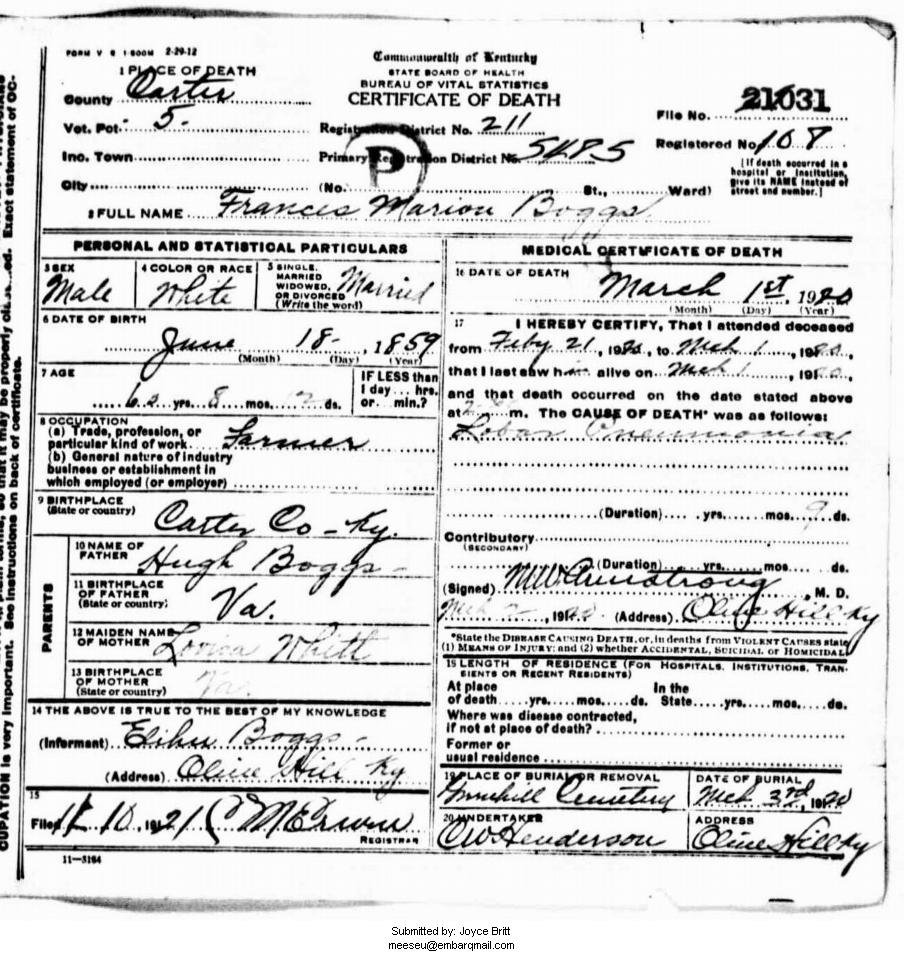 FORM V S 1-500M 2-29-12
Commonwealth of Kentucky
STATE BOARD OF HEALTH
BUREAU OF VITAL STATISTICS
CERTIFICATE OF DEATH
1 PLACE OF DEATH
County Carter
Vot. Pct. 5
Inc. Town
City
Registration District No. 211
Primary Registration District No. 5485
(No. St., Ward)
File No. 21031
Registered No. 108
[If death occurred in a
hospital or institution,
give its NAME instead of
street and number.]
2 FULL NAME Frances Marion Boggs
PERSONAL AND STATISTICAL PARTICULARS
3 SEX
Male
4 COLOR OR RACE
White
5 SINGLE,
MARRIED
WIDOWED,
OR DIVORCED
(Write the word)
Married
6 DATE OF BIRTH
June 18- 1859
(Month) (Day) (Year)
7 AGE
yrs. 8 mos. 12 ds.
IF LESS than
1 day... hrs.
or... min.?
8 OCCUPATION
(a) Trade, profession, or
particular kind of work Farmer
(b) General nature of industry
business or establishment in
which employed (or employer)
9 BIRTHPLACE
(State or country) Carter Co - Ky.
PARENTS
10 NAME OF
FATHER Hugh Boggs -
11 BIRTHPLACE
OF FATHER
(State or country) Va.
12 MAIDEN NAME
OF MOTHER Lovica Whitt
13 BIRTHPLACE
OF MOTHER
(State or country) Va.
14 THE ABOVE IS TRUE TO THE BEST OF MY KNOWLEDGE
(Informant) Elihu Boggs -
(Address) Olive Hill Ky
15
Filed 1 10 1921
REGISTRAR
11-3184
MEDICAL CERTIFICATE OF DEATH
16 DATE OF DEATH
March 1st, 1920
(Month) (Day) (Year)
17 I HEREBY CERTIFY, That I attended deceased
from Feby 21, 1920, to Mch 1, 1920,
that I last saw him alive on Mch 1, 1920,
and that death occurred on the date stated above
at m. The CAUSE OF DEATH* was as follows:
Lobar Pneumonia
(Duration) yrs. mos. 9 ds.
Contributory
(SECONDARY)
(Duration) yrs. mos. ds.
(Signed) Armstrong, M. D.
Mch 2, 1920 (Address) Olive Hill Ky
*State the DISEASE CAUSING DEATH, or, in deaths from VIOLENT CAUSES state
(1) MEANS OF INJURY; and (2) whether ACCIDENTAL, SUICIDAL OR HOMICIDAL
18 LENGTH OF RESIDENCE (FOR HOSPITALS, INSTITUTIONS, TRAN-
SIENTS OR RECENT RESIDENTS)
At place In the
of death yrs. mos. ds. State yrs. mos. ds.
Where was disease contracted,
if not at place of death?
Former or
usual residence
19 PLACE OF BURIAL OR REMOVAL
Cemetery
DATE OF BURIAL
Mch 3rd, 1920
20 UNDERTAKER
CW Henderson
ADDRESS
Olive Hill Ky
Submitted by: Joyce Britt
meeseu@embarqmail.com